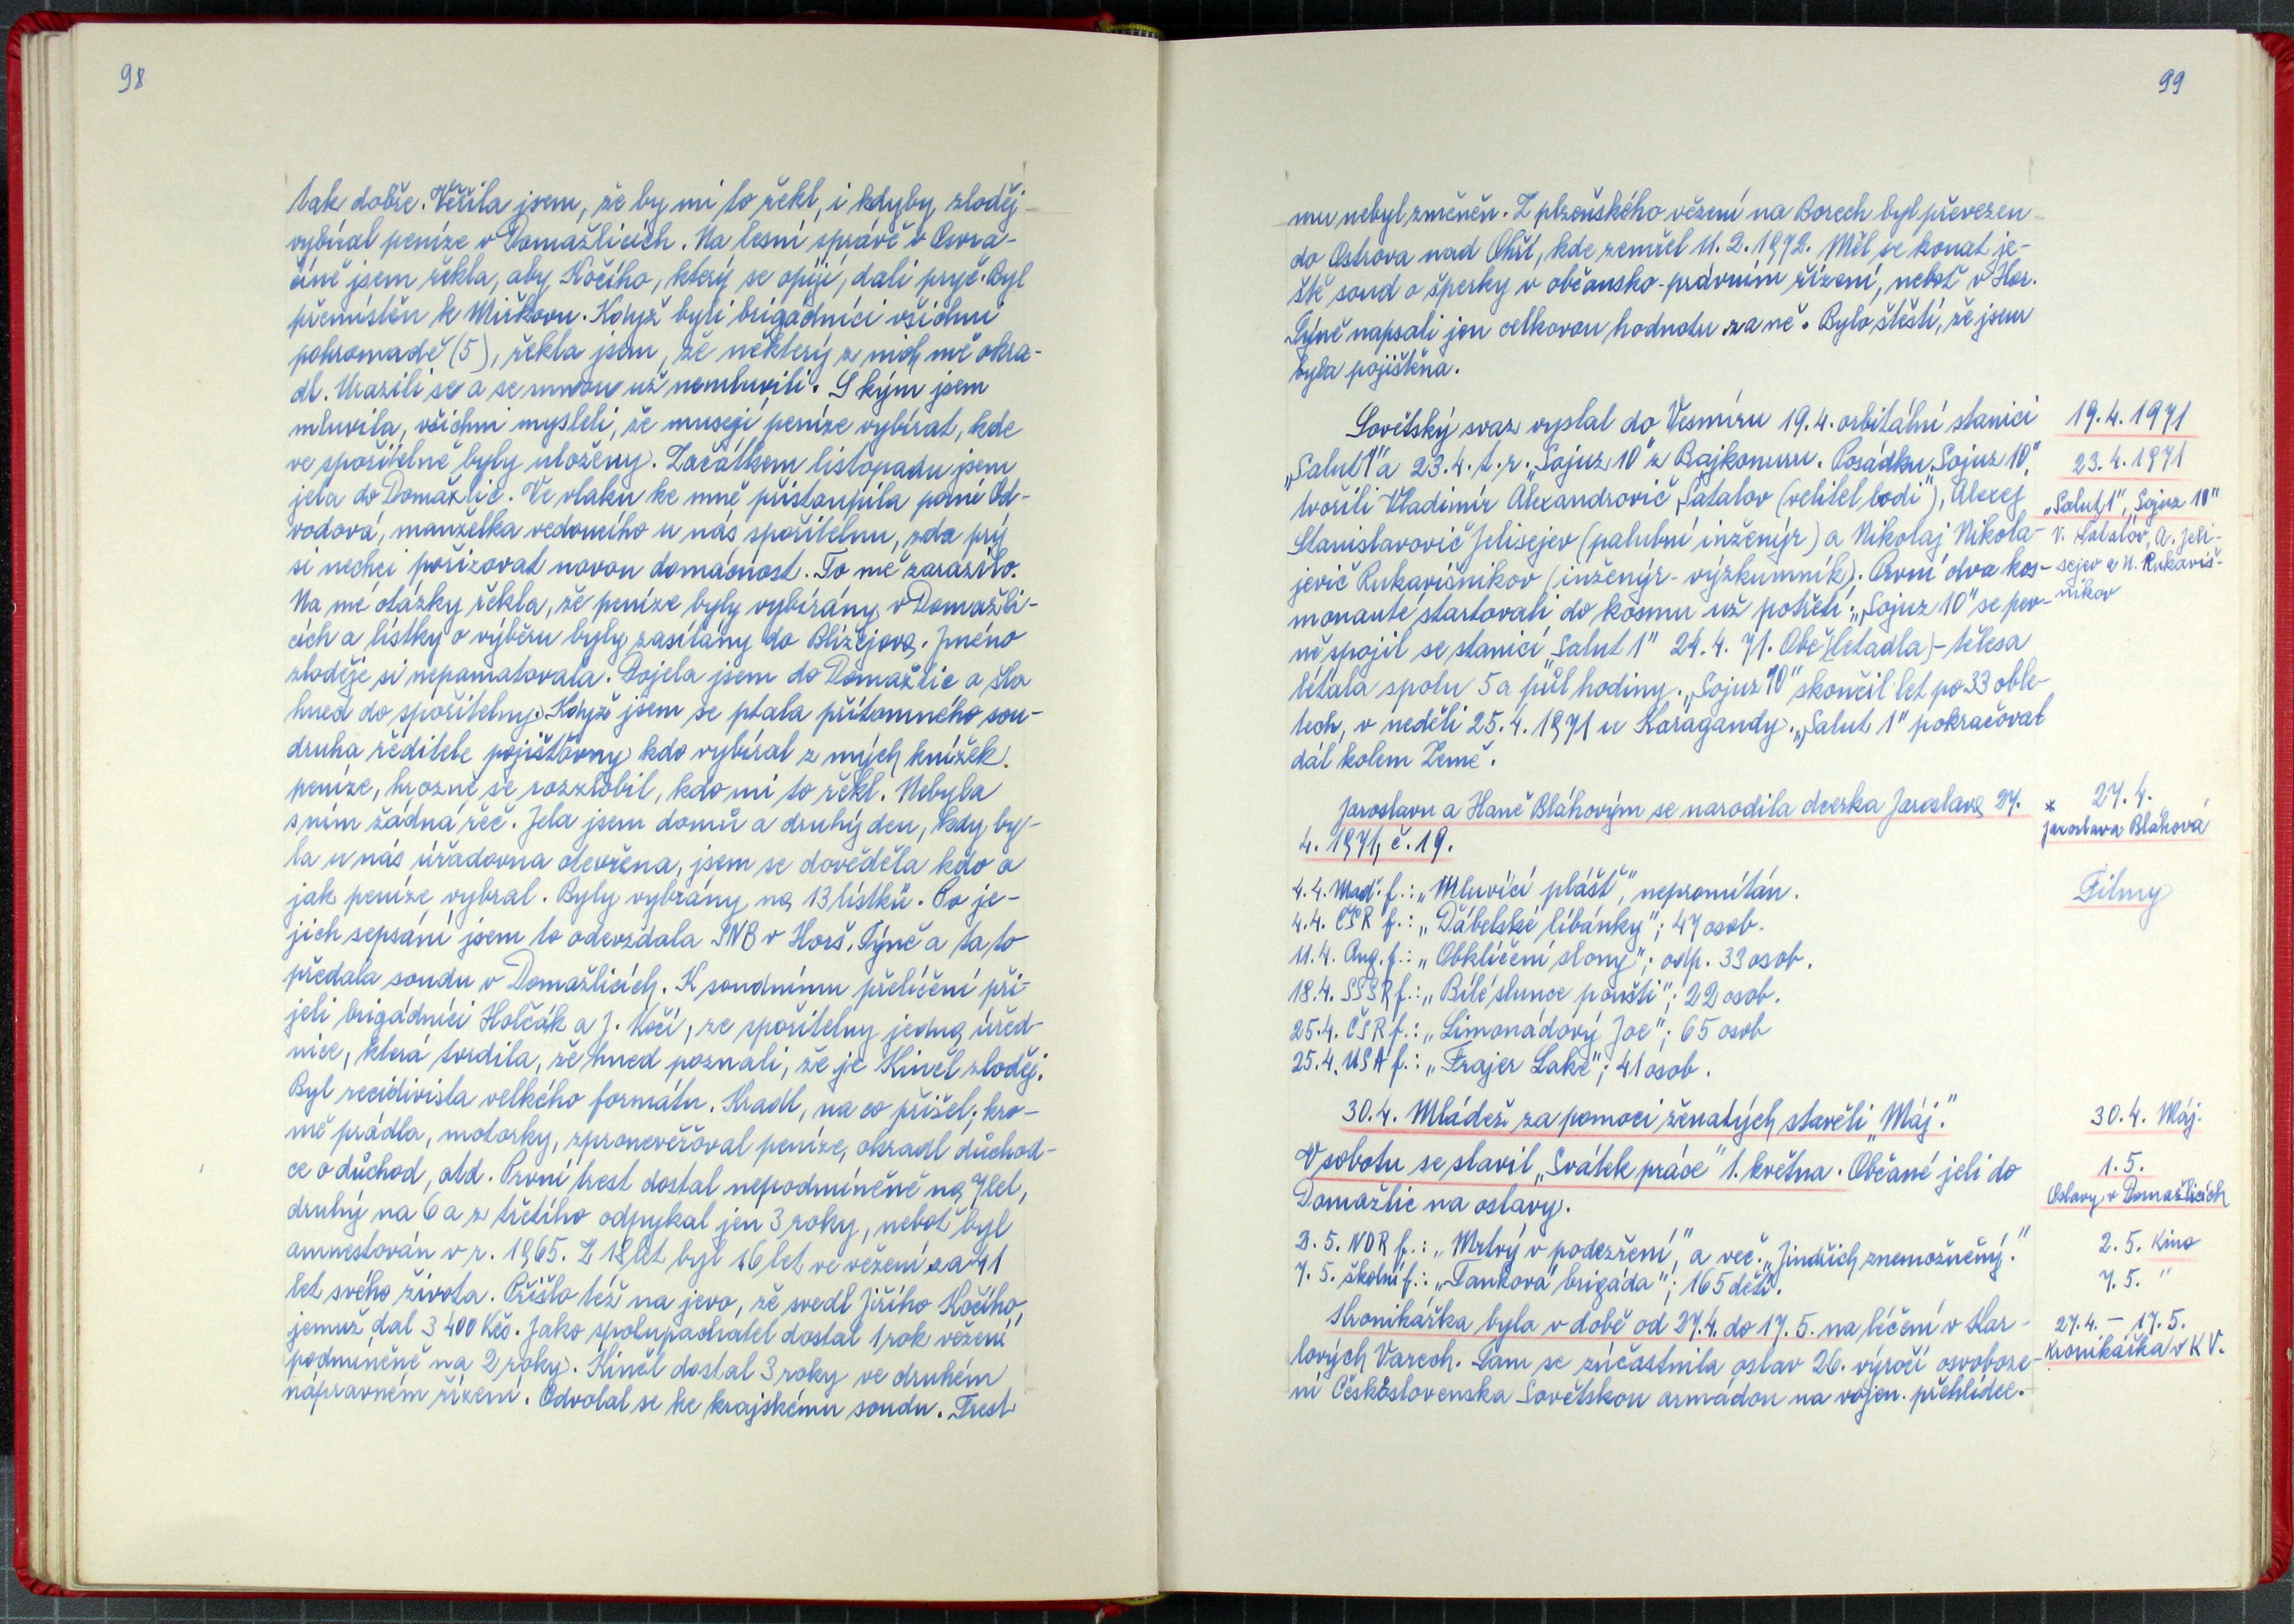 98
tak dobře. Věřila jsem, že by mi to řekl, i kdyby zloděj
vybíral peníze v Domažlicích. Na lesní správě v Osvra-
číně jsem řekla, aby Kočího, který se opíjí, dali pryč. Byl
přemístěn k Mířkovu. Když byli brigádníci všichni
pohromadě (5), řekla jsem, že některý z nich mě okra-
dl. Urazili se a se mnou už nemluvili. S kým jsem
mluvila, všichni mysleli, že musejí peníze vybírat, kde
ve spořitelně byly uloženy. Začátkem listopadu jsem
jela do Domažlic. Ve vlaku ke mně přistoupila paní Od-
vodová, manželka vedoucího u nás spořitelnu, zda prý
si nechci pořizovat novou domácnost. To mě zarazilo.
Na mé otázky řekla, že peníze byly vybírány v Domažli-
cích a lístky o výběru byly zasílány do Blížejova. Jméno
zloděje si nepamatovala. Dojela jsem do Domažlic a šla
hned do spořitelny. Když jsem se ptala přítomného sou-
druha ředitele pojišťovny kdo vybíral z mých knížek
peníze, hrozně se rozzlobil, kdo mi to řekl. Nebyla
s ním žádná řeč. Jela jsem domů a druhý den, kdy by-
la u nás úřadovna otevřena, jsem se dověděla kdo a
jak peníze vybral. Byly vybrány na 13 lístků. Po je-
jich sepsání jsem to odevzdala SNB v Horš. Týně a ta to
předala soudu v Domažlicích. K soudnímu přelíčení při-
jeli brigádníci Holčák a J. Kočí, ze spořitelny jedna úřed-
nice, která tvrdila, že hned poznali, že je Kinčl zloděj.
Byl recidivista velkého formátu. Kradl, na co přišel; kro-
mě prádla, motorky, zpronevěřoval peníze, okradl důchod-
ce o důchod, atd. První trest dostal nepodmíněně na 7 let,
druhý na 6 a z třetího odpykal jen 3 roky, neboť byl
amnestován v r. 1965. Z 18 let byl 16 let ve vězení za 41
let svého života. Přišlo též na jevo, že svedl Jiřího Kočího,
jemuž dal 3 400 Kčs. Jako spolupachatel dostal 1 rok vězení
podmíněně na 2 roky. Kinčl dostal 3 roky ve druhém
nápravném řízení. Odvolal se ke krajskému soudu. Trest
99
mu nebyl změněn. Z plzeňského vězení na Borech byl převezen
do Ostrova nad Ohří, kde zemřel 11. 2. 1972. Měl se konat je-
ště soud o šperky v občansko-právním řízení, neboť v Hor.
Týně napsali jen celkovou hodnotu za ně. Bylo štěstí, že jsem
byla pojištěna.
Sovětský svaz vyslal do Vesmíru 19. 4. orbitální stanici
„Salut 1" a 23. 4. t. r. „Sojuz 10" z Bajkonuru. Posádku „Sojuz 10",
tvořili Vladimír Alexandrovič Šatalov (velitel lodi"), Alexej
Stanislavovič Jelisejev (palubní inženýr) a Nikolaj Nikola-
jevič Rukavišnikov (inženýr-výzkumník). První dva kos-
monauté startovali do kosmu už potřetí. „Sojuz 10" se pev-
ně spojil se stanicí „Salut 1" 24. 4. 71. Obě (letadla) - tělesa
létala spolu 5 a půl hodiny. „Sojuz 10" skončil let po 33 oble-
tech, v neděli 25. 4. 1971 u Karagandy. „Salut 1" pokračoval
dál kolem Země.
19. 4. 1971
23. 4. 1971
„Salut 1", Sojuz 10"
V. Šatalov, A. Jeli-
sejev a N. Rukaviš-
nikov
Jaroslavu a Haně Bláhovým se narodila dcerka Jaroslava 27.
4. 1971, č. 19.
* 27. 4.
Jaroslava Bláhová
4. 4. Maď. f.: „Mluvící plášť", nepromítán.
4. 4. ČSR f.: „Ďábelské líbánky"; 47 osob.
11. 4. Ang. f.: „Obklíčení slony"; odp. 33 osob.
18. 4. SSSR f.: „Bílé slunce pouští"; 22 osob.
25. 4. ČSR f.: „Limonádový Joe"; 65 osob
25. 4. USA f.: „Frajer Luke"; 41 osob.
Filmy
30. 4. Mládež za pomoci ženatých stavěli „Máj."
30. 4. Máj.
V sobotu se slavil „Svátek práce" 1. května. Občané jeli do
Domažlic na oslavy.
1. 5.
Oslavy v Domažlicích
2. 5. NDR f.: „Mrtvý v podezření", a več. „Jindřich znemožněný."
7. 5. školní f.: „Tanková brigáda"; 165 dětí.
2. 5. Kino
7. 5. "
Kronikářka byla v době od 27. 4. do 17. 5. na léčení v Kar-
lových Varech. Tam se zúčastnila oslav 26. výročí osvoboze-
ní Československa Sovětskou armádou na vojen. přehlídce.
27. 4. - 17. 5.
Kronikářka v K V.